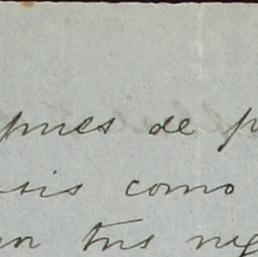 pues de p
sis como
on tus neg